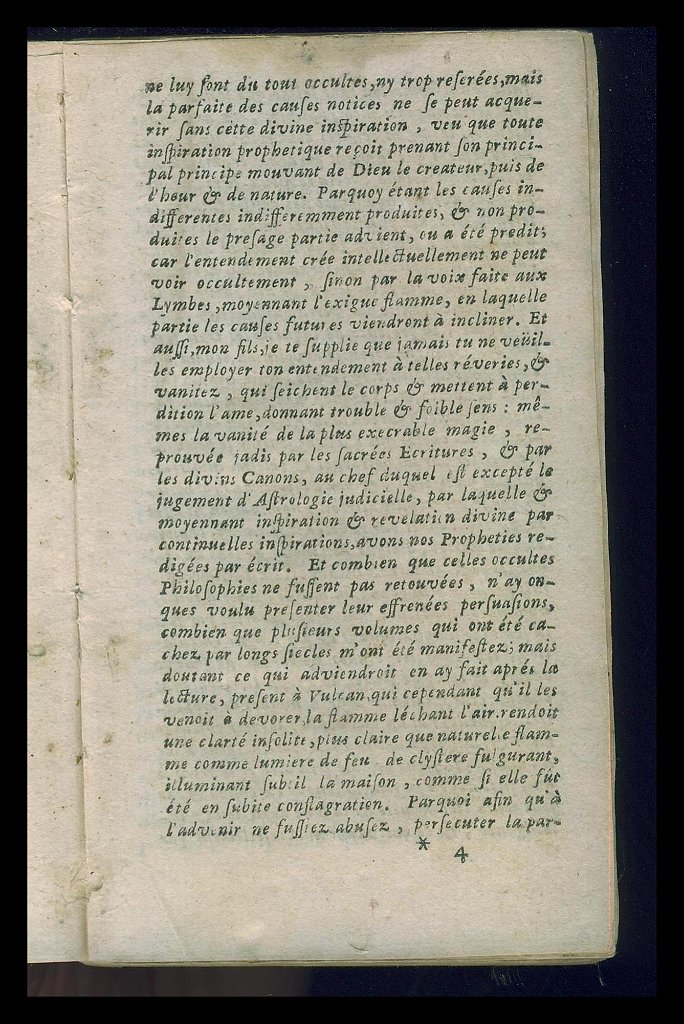 ne luy ſont du tout occultes, ny trop reſerées, mais
la parfaite des cauſes notices ne ſe peut acque-
rir ſans cette divine inſpiration, veu que toute
inſpiration prophetique reçoit prenant ſon princi-
pal principe mouvant de Dieu le createur, puis de
l'heur & de nature. Parquoy étant les cauſes in-
differentes indifferemment produites, & non pro-
duites le preſage partie advient, ou a été predit;
car l'entendement crée intellectuellement ne peut
voir occultement, ſinon par la voix faite aux
Lymbes, moyennant l'exigue flamme, en laquelle
partie les cauſes futures viendront à incliner. Et
auſſi, mon fils, je te ſupplie que jamais tu ne veüil-
les employer ton entendement à telles réveries, &
vanitez, qui ſeichent le corps & mettent à per-
dition l'ame, donnant trouble & foible ſens : mê-
mes la vanité de la plus execrable magie, re-
prouvée jadis par les ſacrées Ecritures, & par
les divins Canons, au chef duquel eſt excepté le
jugement d'Aſtrologie judicielle, par laquelle &
moyennant inſpiration & revelation divine par
continuelles inſpirations, avons nos Propheties re-
digées par écrit. Et combien que celles occultes
Philoſophies ne fuſſent pas retouvées, n'ay on-
ques voulu preſenter leur effrenées perſuaſions,
combien que pluſieurs volumes qui ont été ca-
chez par longs ſiecles m'ont été manifeſtez; mais
doutant ce qui adviendroit en ay fait aprés la
lecture, preſent à Vulcan, qui cependant qu'il les
venoit à devorer, la flamme léchant l'air, rendoit
une clarté inſolite, plus claire que naturelle flam-
me comme lumiere de feu de clyſtere fulgurant,
illuminant ſubtil la maiſon, comme ſi elle fut
été en ſubite conflagration. Parquoi afin qu'à
l'advenir ne fuſſiez abuſez, perſecuter la par-
* 4